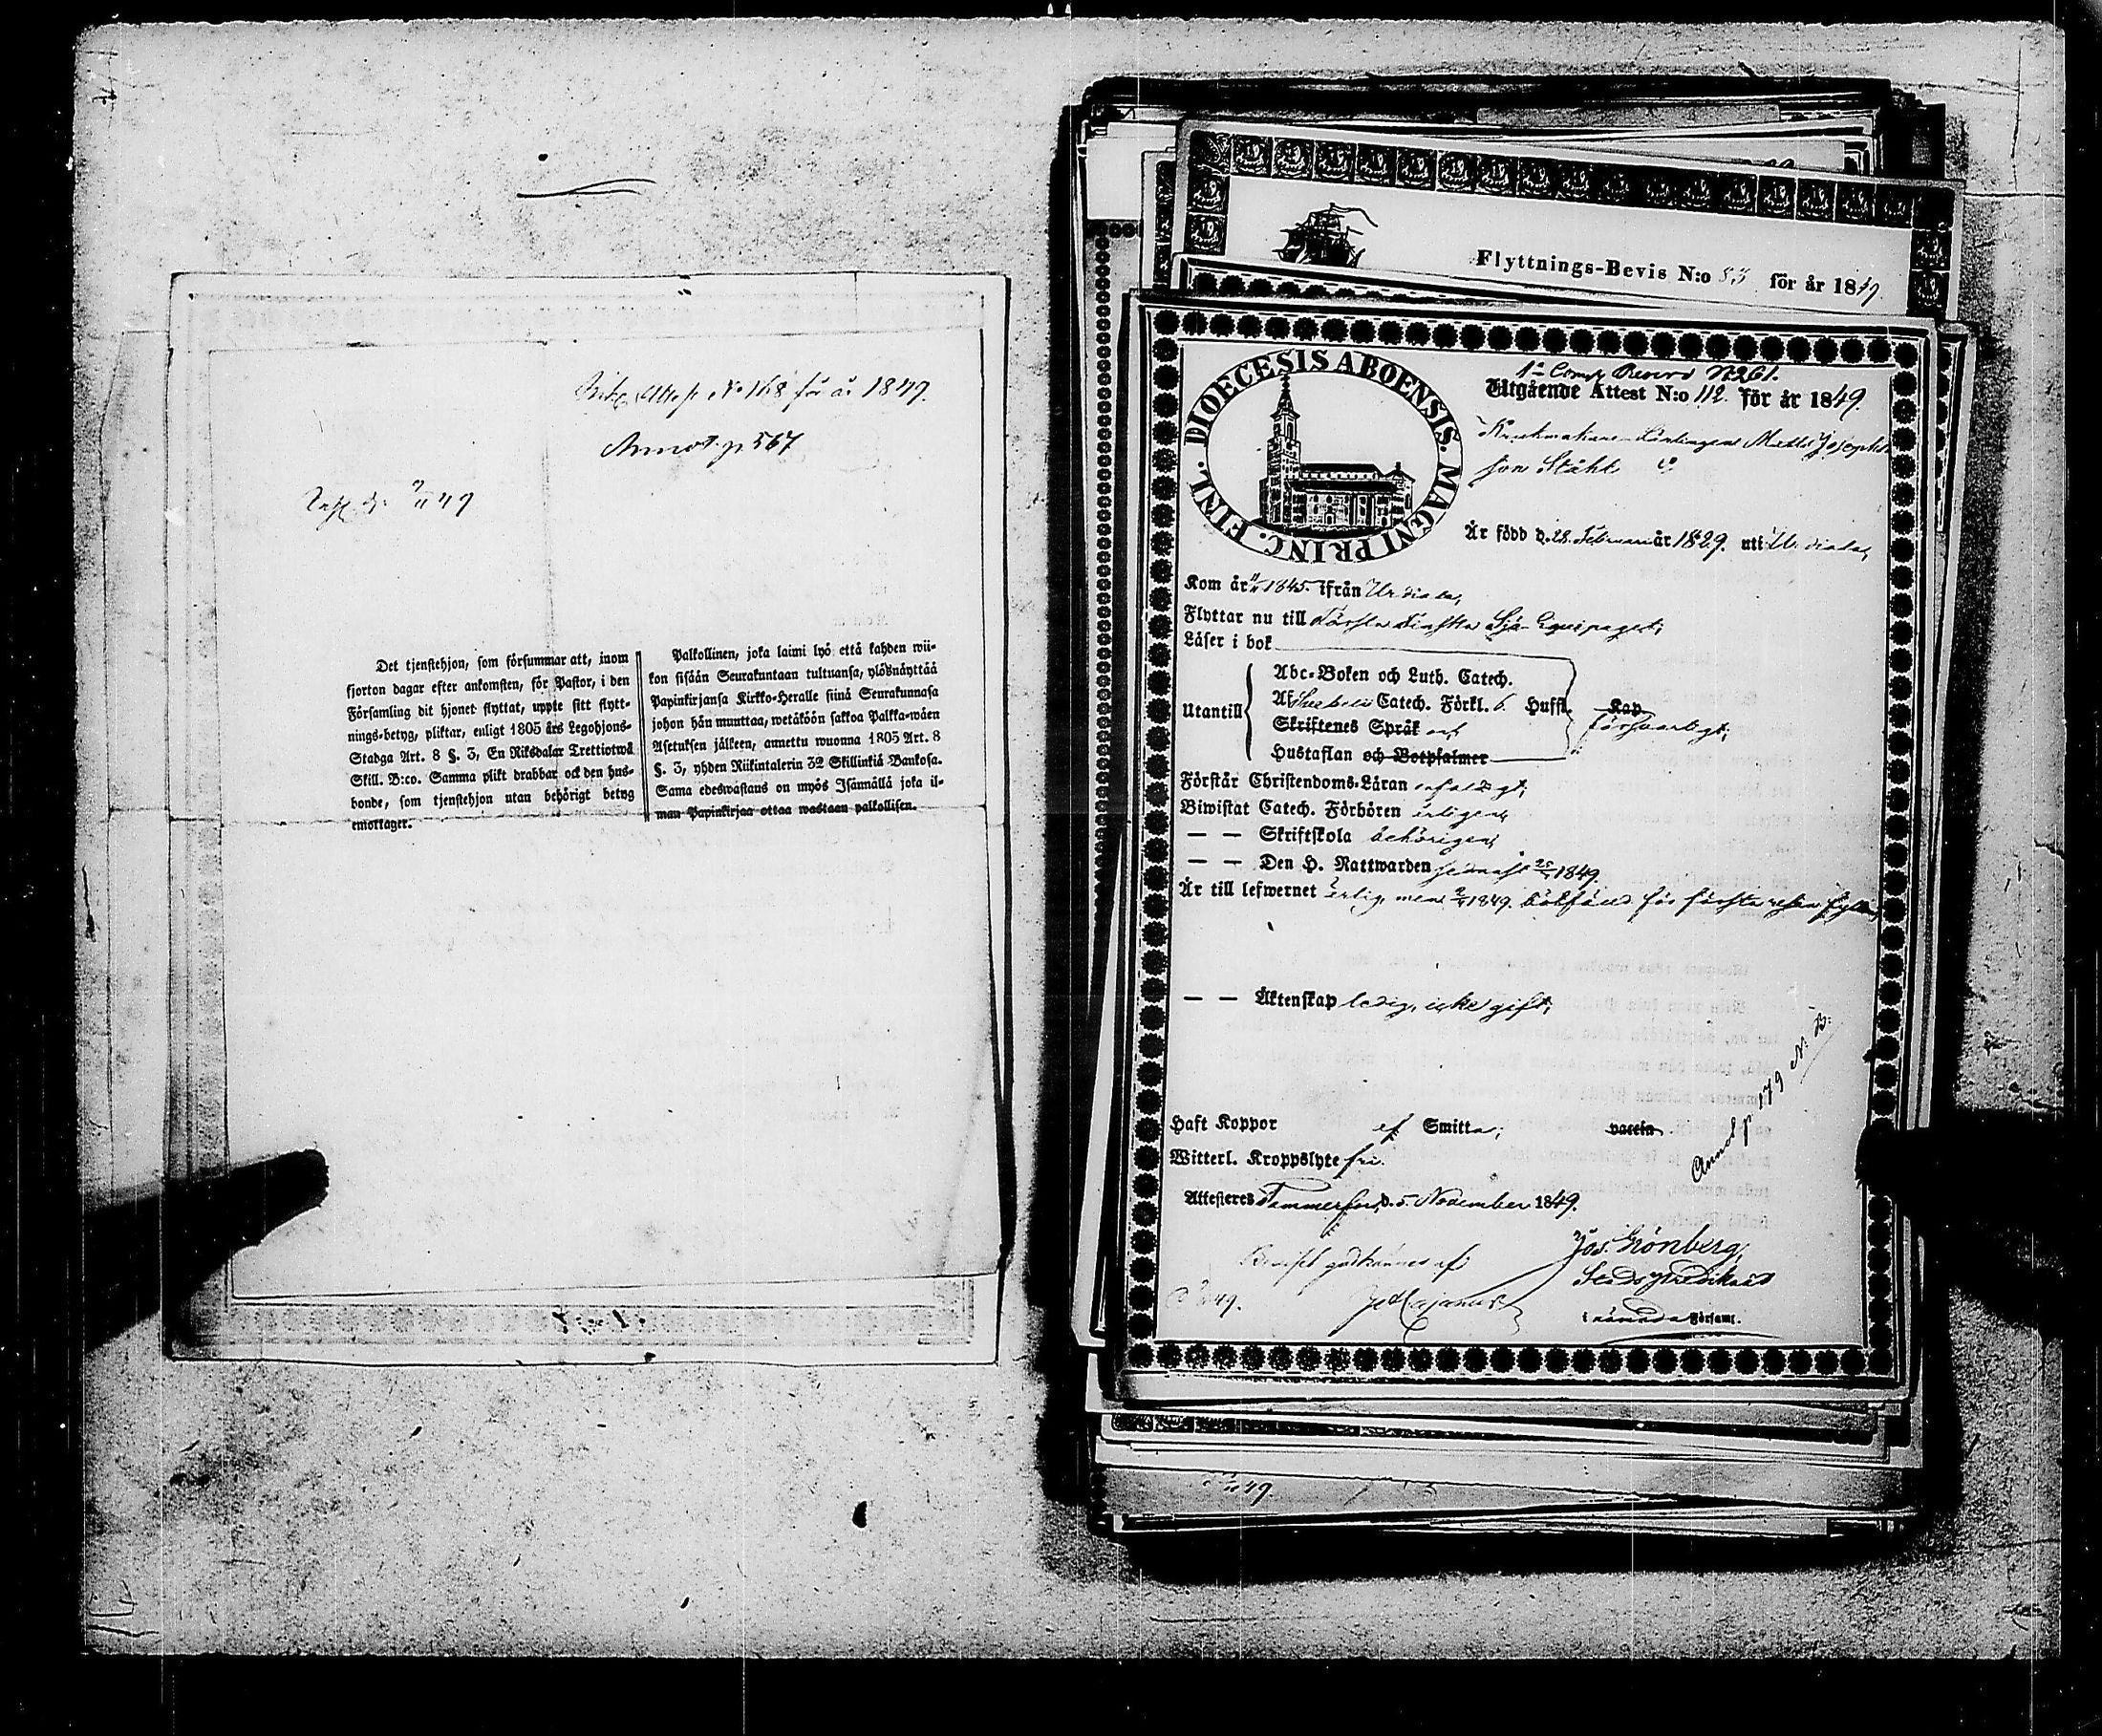 Attest No 168 för år 1849.
Annot. p. 567
49
Det tjenstehjon, som försummar att, inom
fjorton dagar efter ankomsten, för Pastor, i den
Församling dit hjonet flyttat, uppte sitt flytt-
nings-betyg, pliktar, enligt 1805 års Legohjons-
Stadga Art. 8 §. 3, En Riksdalar Trettiotwå
Skill. B:co. Samma plikt drabbar ock den hus-
bonde, som tjenstehjon utan behörigt betyg
emottager.
Palkollinen, joka laimi lyö että kahden wii-
kon sisään Seurakuntaan tultuansa, ylösnäyttää
Papinkirjansa Kirkko-Heralle siinä Seurakunnasa
johon hän muuttaa, wetäköön sakkoa Palkka-wäen
Asetuksen jälkeen, annettu wuonna 1805 Art. 8
§. 3, yhden Riikintalerin 32 Skillinkiä Bankosa.
Sama edeswastaus on myös Isännällä joka il-
man Papinkirjaa ottaa wastaan palkollisen.
Flyttnings-Bevis N:o 83 för år 1849
DIOECESIS ABOENSIS. MAGNI PRINC. FINL.
No 261.
Utgående Attest N:o 112. för år 1849.
Krukmakare-Lärlingen Matts Josephs
son Ståhl
Är född d. 28. Februari år 1829. uti Urdiala,
Kom år 1845. ifrån Urdiala,
Flyttar nu till Första Finska Sjö-Equipaget;
Läser i bok
Utantill
Abc-Boken och Luth. Catech.
Af Svebelii Catech. Förkl. 6. Huffst. Kap.
Skriftenes Språk och försvarligt;
Hustaflan och Botpsalmer
Förstår Christendoms-Läran enfaldigt;
Biwistat Catech. Förhören årligen;
— — Skriftskola behörigen;
— — Den H. Nattwarden sednast 1849.
Är till lefwernet ärlig, men 1849. bötfäld för första resan fylleri
— — Äktenskap ledig, icke gift;
Annot. p. 179
Haft Koppor af Smitta; vaccin
Witterl. Kroppslyte fri.
Attesteres Tammerfors, d. 5. November 1849.
Jos. Grönberg,
Stadspredikant
i nämnda Församl.
Beviset godkännes af
49.
J. Cajanus
49.